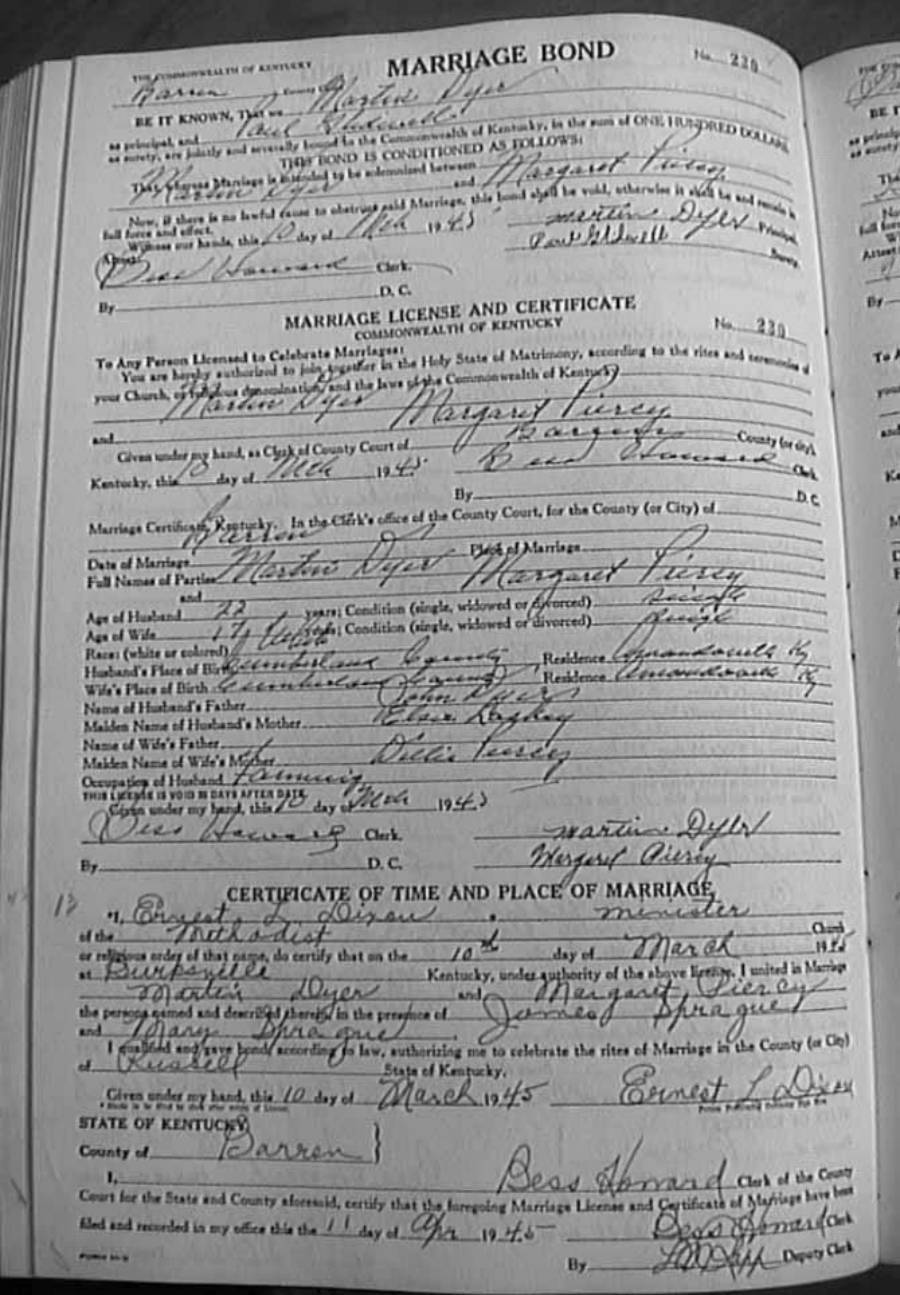 THE COMMONWEALTH OF KENTUCKY
MARRIAGE BOND
No. 230
Barren County
BE IT KNOWN, That we Martin Dyer
as principal, and Paul Glidewell
as surety, are jointly and severally bound to the Commonwealth of Kentucky, in the sum of ONE HUNDRED DOLLARS
THIS BOND IS CONDITIONED AS FOLLOWS:
That, whereas Marriage is intended to be solemnized between
Martin Dyer and Margaret Piercy
Now, if there is no lawful cause to obstruct said Marriage, this bond shall be void, otherwise it shall be and remain in
full force and effect.
Witness our hands, this 10 day of Mch 1945 Martin Dyer Principal,
Attest: Paul Glidewell Surety.
Bess Howard Clerk.
By D. C.
MARRIAGE LICENSE AND CERTIFICATE
COMMONWEALTH OF KENTUCKY
No. 230
To Any Person Licensed to Celebrate Marriages:
You are hereby authorized to join together in the Holy State of Matrimony, according to the rites and ceremonies of
your Church, or religious denomination, and the laws of the Commonwealth of Kentucky
Martin Dyer
and Margaret Piercy
Given under my hand, as Clerk of County Court of Barren County (or city),
Kentucky, this 10 day of Mch 1945 Bess Howard Clerk
By D. C.
Marriage Certificate, Kentucky. In the Clerk's office of the County Court, for the County (or City) of
Barren
Date of Marriage Place of Marriage
Full Names of Parties Martin Dyer
and Margaret Piercy
Age of Husband 22 years; Condition (single, widowed or divorced) single
Age of Wife 17 years; Condition (single, widowed or divorced) single
Race: (white or colored) White
Husband's Place of Birth Cumberland County Residence Amandaville Ky
Wife's Place of Birth Cumberland County Residence Amandaville Ky
Name of Husband's Father John Dyer
Maiden Name of Husband's Mother Elsie
Name of Wife's Father Willis Piercy
Maiden Name of Wife's Mother
Occupation of Husband Farming
THIS LICENSE IS VOID 30 DAYS AFTER DATE
Given under my hand, this 10 day of Mch 1945
Bess Howard Clerk. Martin Dyer
By D. C. Margaret Piercy
CERTIFICATE OF TIME AND PLACE OF MARRIAGE
13
"I, Ernest L. Dixon, minister
of the Methodist Church
or religious order of that name, do certify that on the 10th day of March 1945
at Burksville Kentucky, under authority of the above license, I united in Marriage
Martin Dyer and Margaret Piercy
the persons named and described therein, in the presence of James Sprague
and Mary Sprague
I qualified and gave bond, according to law, authorizing me to celebrate the rites of Marriage in the County (or City)
of Russell State of Kentucky.
Given under my hand, this 10 day of March 1945 Ernest L Dixon
STATE OF KENTUCKY
County of Barren
I, Bess Howard Clerk of the County
Court for the State and County aforesaid, certify that the foregoing Marriage License and Certificate of Marriage have been
filed and recorded in my office this the 11 day of Apr 1945
Bess Howard Clerk
By Deputy Clerk